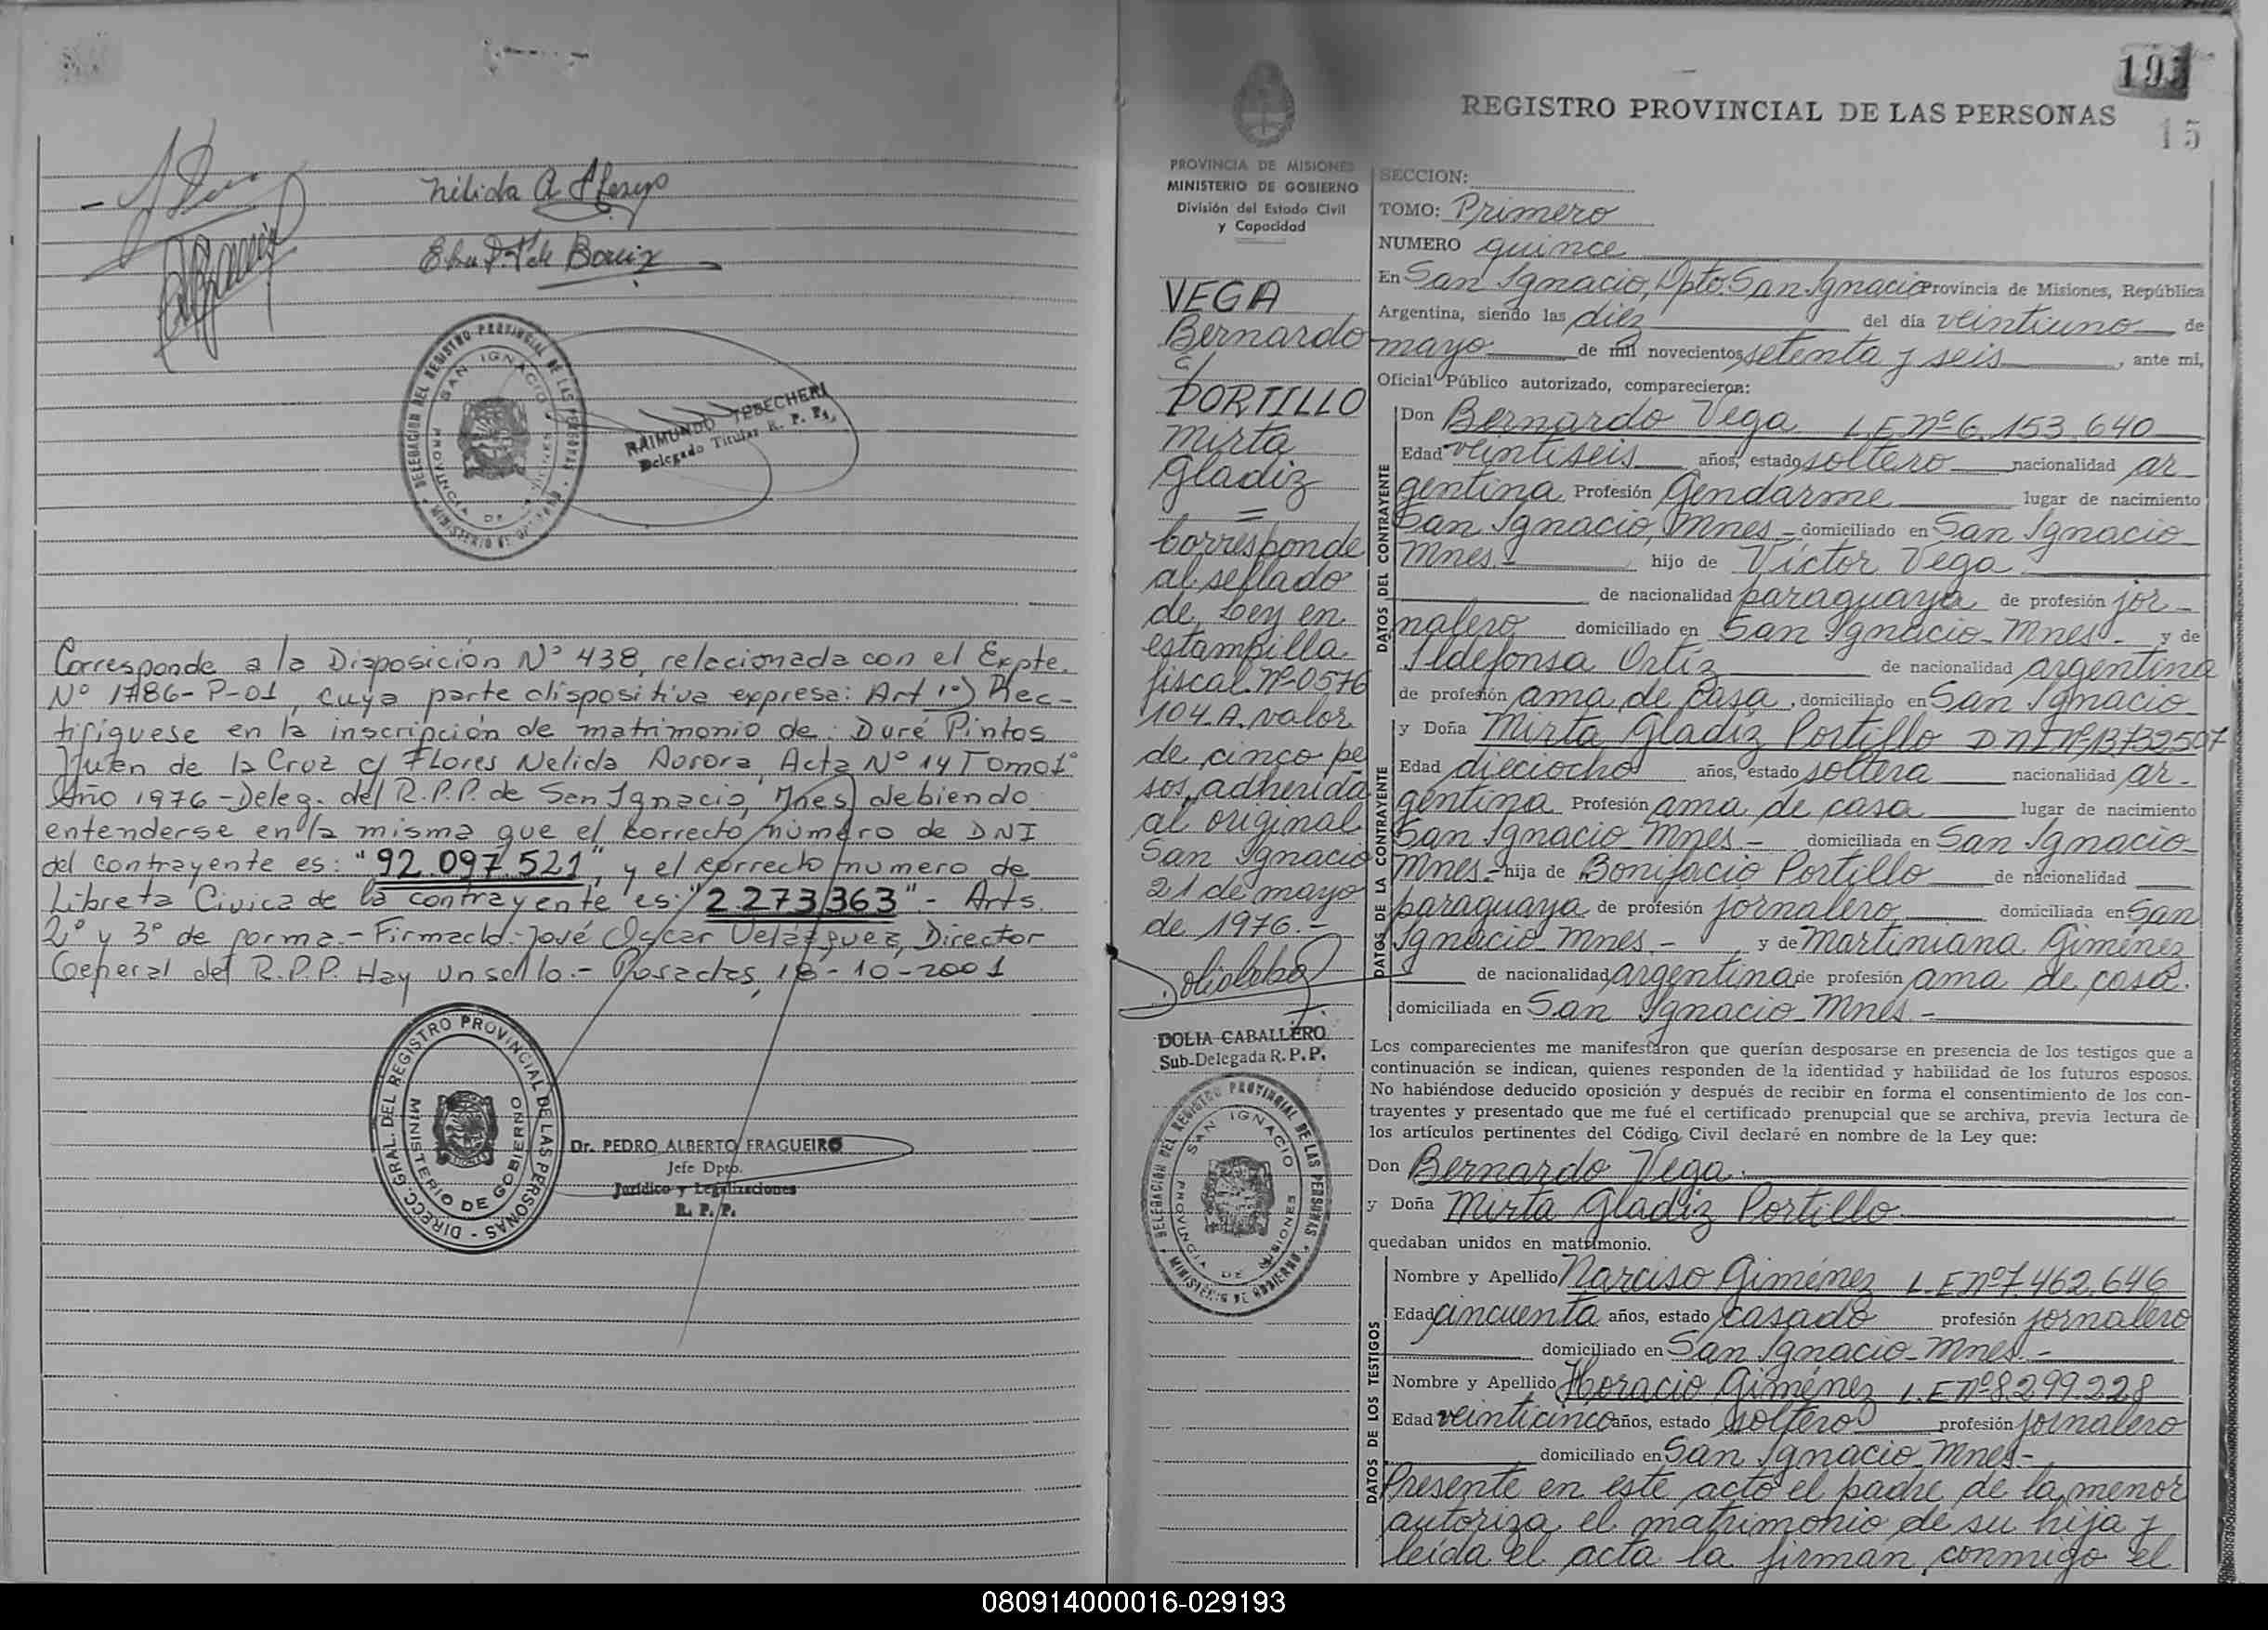 Nilida A Flores
Elsa
RAIMUNDO TEBECHERI
Delegado Titular R. P. P.
DELEGACION DEL REGISTRO PROVINCIAL DE LAS PERSONAS
SAN IGNACIO
PROVINCIA DE MISIONES
MINISTERIO DE GOBIERNO
Corresponde a la Disposición Nº 438, relacionada con el Expte.
Nº 1786-P-01, cuya parte dispositiva expresa: Art 1º) Rec-
tifíquese en la inscripción de matrimonio de: Duré Pintos
Juan de la Cruz c/ Flores Nelida Aurora, Acta Nº 14 Tomo 1º
Año 1976 - Deleg. del R.P.P. de San Ignacio, Mnes, debiendo
entenderse en la misma que el correcto número de DNI
del contrayente es: "92.097.521", y el correcto numero de
Libreta Civica de la contrayente es: "2.273.363".- Arts.
2º y 3º de forma.- Firmado.- José Oscar Velázquez, Director
General del R.P.P. Hay un sello.- Posadas, 18-10-2001
DIRECC. GRAL. DEL REGISTRO PROVINCIAL DE LAS PERSONAS
MINISTERIO DE GOBIERNO
Dr. PEDRO ALBERTO FRAGUEIRO
Jefe Dpto.
Jurídico y Legalizaciones
R. P. P.
REGISTRO PROVINCIAL DE LAS PERSONAS
15
PROVINCIA DE MISIONES
MINISTERIO DE GOBIERNO
División del Estado Civil
y Capacidad
VEGA
Bernardo
c/
PORTILLO
Mirta
Gladiz
=
Corresponde
al sellado
de Ley en
estampilla
fiscal Nº 0576
104 A. valor
de cinco pe
sos, adherida
al original
San Ignacio
21 de mayo
de 1976.-
DOLIA CABALLERO
Sub-Delegada R. P. P.
DELEGACION DEL REGISTRO PROVINCIAL DE LAS PERSONAS
SAN IGNACIO
PROVINCIA DE MISIONES
MINISTERIO DE GOBIERNO
SECCION:
TOMO: Primero
NUMERO quince
En San Ignacio, Dpto. San Ignacio Provincia de Misiones, República
Argentina, siendo las diez del día veintiuno de
mayo de mil novecientos setenta y seis, ante mi,
Oficial Público autorizado, comparecieron:
DATOS DEL CONTRAYENTE
Don Bernardo Vega L.E.Nº 6.153.640
Edad veintiseis años, estado soltero nacionalidad ar
gentina Profesión Gendarme lugar de nacimiento
San Ignacio, Mnes - domiciliado en San Ignacio
Mnes.- hijo de Víctor Vega
de nacionalidad paraguaya de profesión jor-
nalero domiciliado en San Ignacio - Mnes - y de
Ildefonsa Ortíz de nacionalidad argentina
de profesión ama de casa, domiciliado en San Ignacio
DATOS DE LA CONTRAYENTE
y Doña Mirta Gladiz Portillo DNI Nº 13732507
Edad dieciocho años, estado soltera nacionalidad ar-
gentina Profesión ama de casa lugar de nacimiento
San Ignacio Mnes - domiciliada en San Ignacio
Mnes.- hija de Bonifacio Portillo de nacionalidad
paraguaya de profesión jornalero, domiciliada en San
Ignacio - Mnes - y de Martiniana Giménez
de nacionalidad argentina de profesión ama de casa.
domiciliada en San Ignacio - Mnes.-
Los comparecientes me manifestaron que querían desposarse en presencia de los testigos que a
continuación se indican, quienes responden de la identidad y habilidad de los futuros esposos.
No habiéndose deducido oposición y después de recibir en forma el consentimiento de los con-
trayentes y presentado que me fué el certificado prenupcial que se archiva, previa lectura de
los artículos pertinentes del Código Civil declaré en nombre de la Ley que:
Don Bernardo Vega
y Doña Mirta Gladiz Portillo
quedaban unidos en matrimonio.
DATOS DE LOS TESTIGOS
Nombre y Apellido Narciso Giménez L.E.Nº 7.462.646
Edad cincuenta años, estado casado profesión jornalero
domiciliado en San Ignacio - Mnes.-
Nombre y Apellido Horacio Giménez L.E.Nº 8.299.228
Edad veinticinco años, estado soltero profesión jornalero
domiciliado en San Ignacio Mnes.-
Presente en este acto el padre de la menor
autoriza el matrimonio de su hija y
leída el acta la firman, conmigo el
080914000016-029193